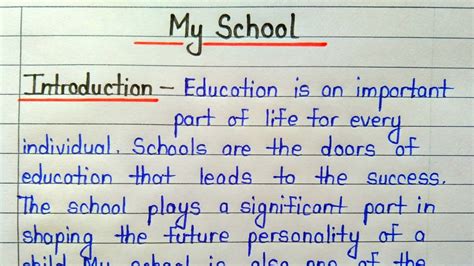 My School
Introduction - Education is an important
part of life for every
individual. Schools are the doors of
education that leads to the success.
The school plays a significant part in
shaping the future personality of a
child. My school is also one of the